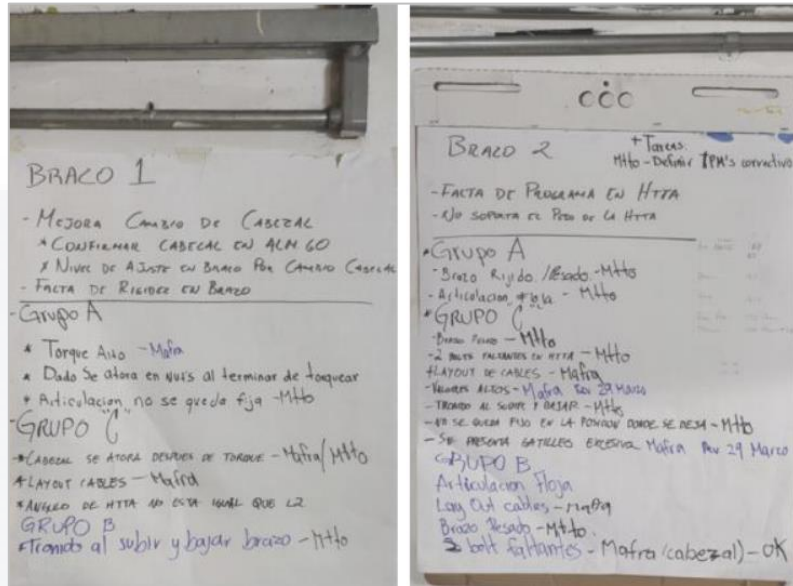 BRAZO 1
- MEJORA CAMBIO DE CABEZAL
* CONFIRMAR CABEZAL EN ALM 60
* NIVEL DE AJUSTE EN BRAZO POR CAMBIO CABEZAL
- FALTA DE RIGIDEZ EN BRAZO
- Grupo A
* Torque Alto - Mafra
* Dado se atora en nuts al terminar de torquear
* Articulacion no se queda fija - Mtto
- GRUPO "C"
* CABEZAL SE ATORA DESPUES DE TORQUE - Mafra/Mtto
* LAYOUT CABLES - Mafra
* ANGULO DE HTTA NO ESTA IGUAL QUE L2
GRUPO B
* Tronido al subir y bajar brazo - Mtto
BRAZO 2
+ Tareas
Mtto - Definir TPM's correctivo
- FALTA DE PROGRAMA EN HTTA
- NO SOPORTA EL PESO DE LA HTTA
* Grupo A
- Brazo Rigido /Pesado - Mtto
- Articulacion floja - Mtto
* GRUPO "C"
- BRAZO PESADO - Mtto
- 2 BOLTS FALTANTES EN HTTA - Mtto
+ LAYOUT DE CABLES - Mafra
- VALORES ALTOS - Mafra Rev 29 Marzo
- TRONIDO AL SUBIR Y BAJAR - Mtto
- NO SE QUEDA FIJO EN LA POSICION DONDE SE DEJA - Mtto
- SE PRESENTA GATILLEO EXCESIVO Mafra Rev 29 Marzo
GRUPO B
Articulacion Floja
Lay Out cables - Mafra
Brazo Pesado - Mtto
2 bolt faltantes - Mafra (cabezal) - OK